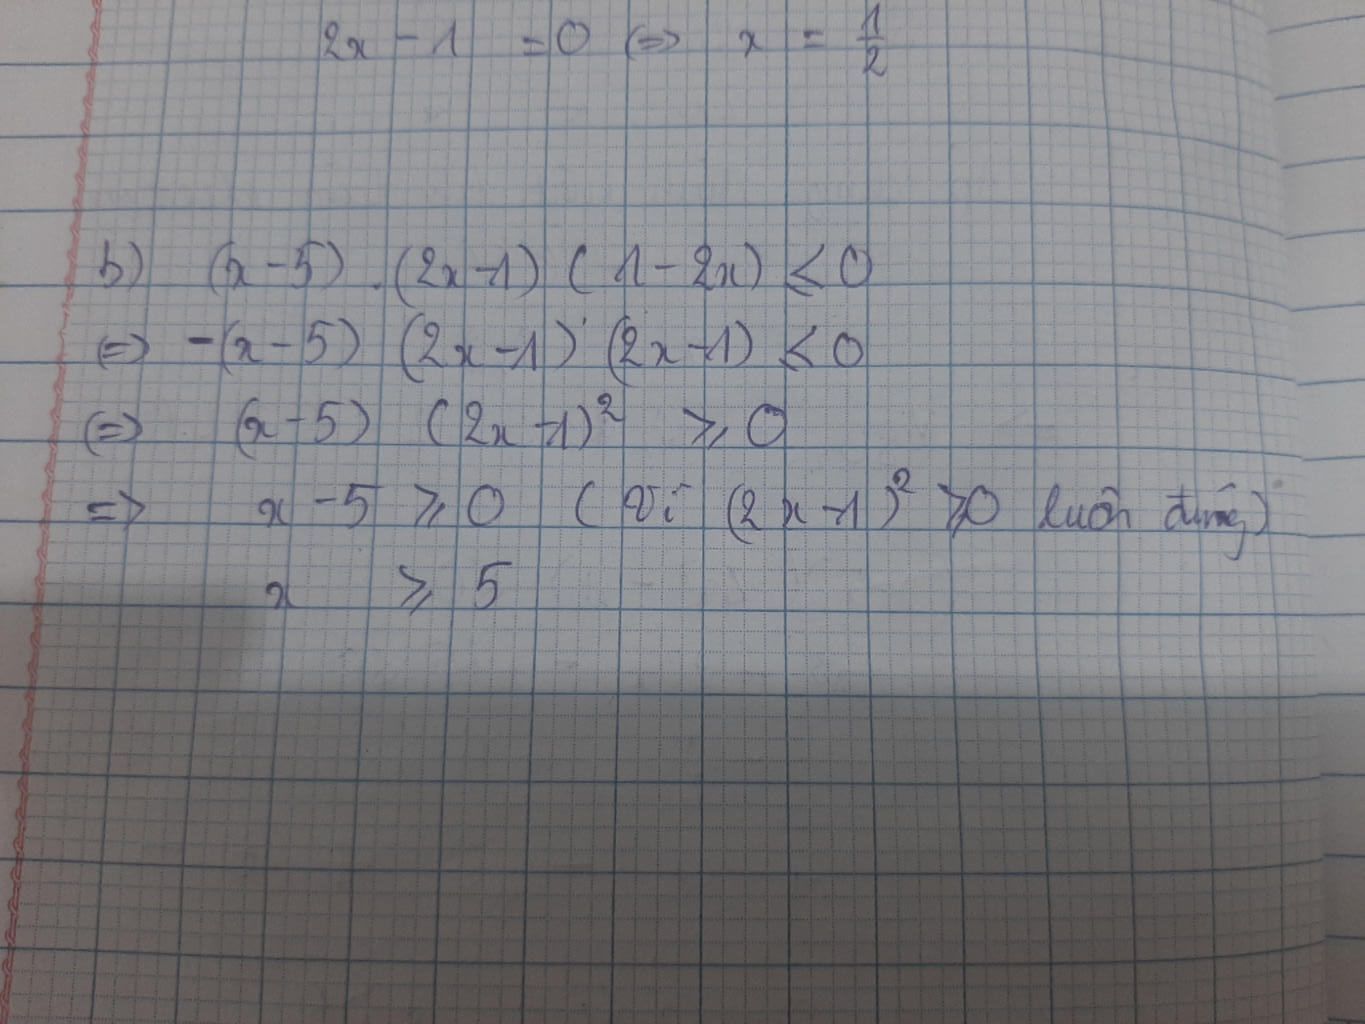 2x - 1 = 0 <=> x = 1/2
b) (x - 5) . (2x - 1) ( 1 - 2x) ≤ 0
<=> -(x - 5) (2x - 1) (2x - 1) ≤ 0
<=> (x - 5) (2x - 1)² ≥ 0
=> x - 5 ≥ 0 ( Vì (2x - 1)² ≥ 0 luôn đúng)
x ≥ 5